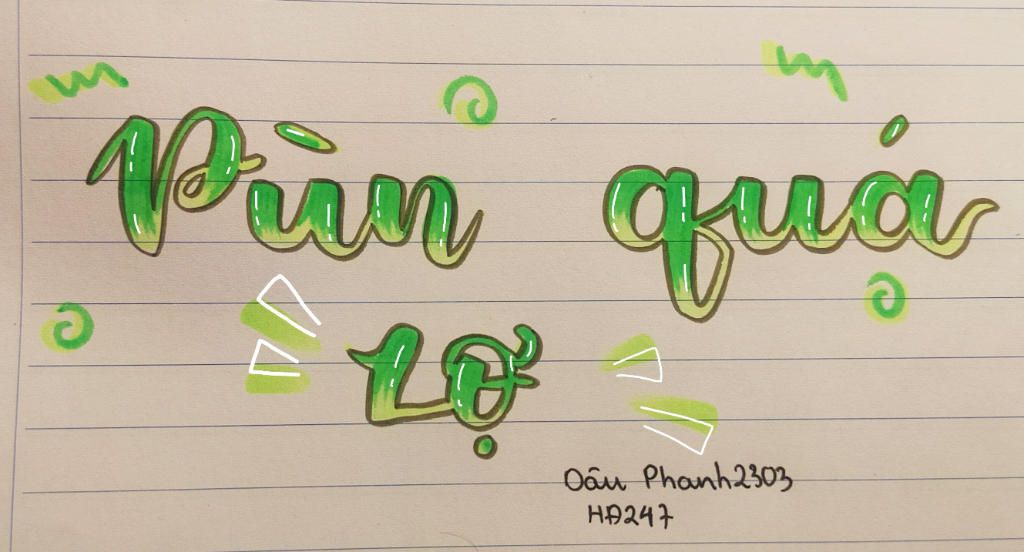 Pùn quá
Lợ
Dâu Phanh2303
HĐ247